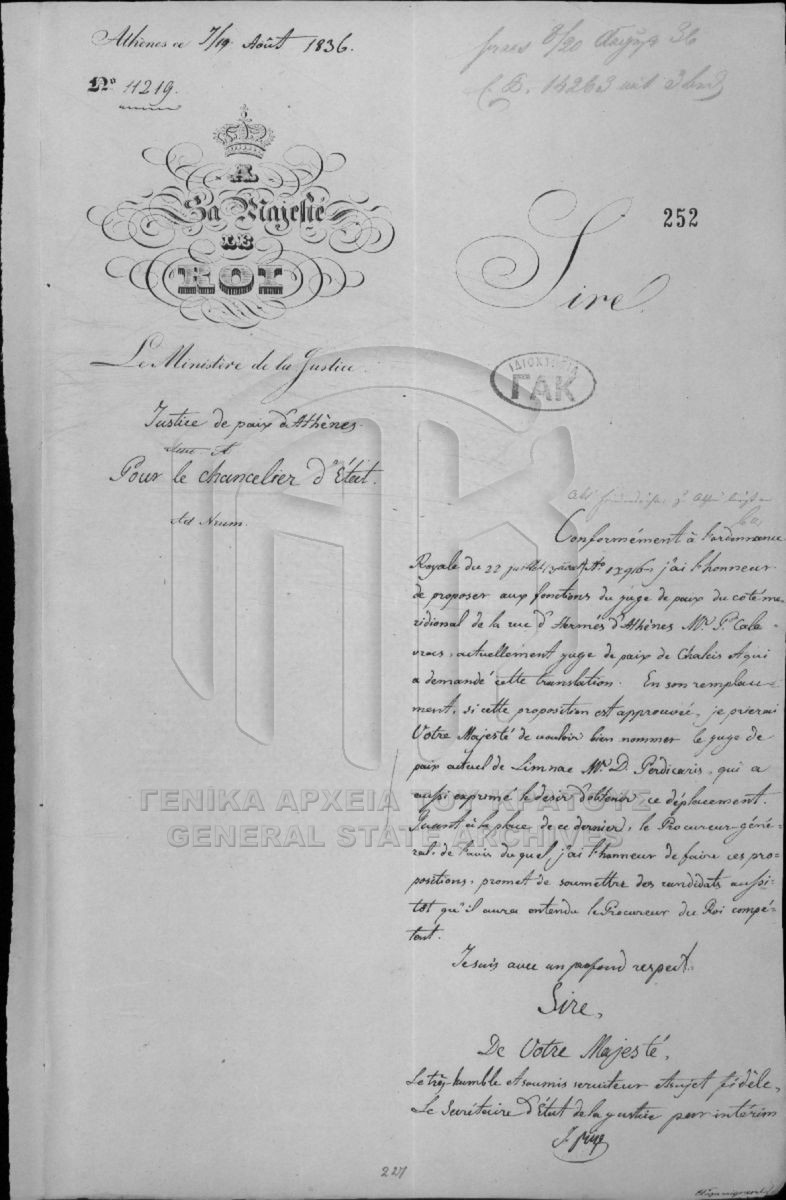 Athènes ce 7/19 Août 1836.
No. 11219.
A
Sa Majesté
LE
ROI
Le Ministère de la Justice.
Justice de paix d'Athènes.
Pour le chancelier d'État.
ad Num.
praes 8/20 36
252
Sire
ΙΔΙΟΚΤΗΣΙΑ
ΓΑΚ
Conformément à l'ordonnance
Royale du 22 juillet No. j'ai l'honneur
de proposer aux fonctions du juge de paix du côté me-
ridional de la rue d'Hermès d'Athènes Mr. P. Cale-
vras, actuellement juge de paix de Chalcis et qui
a demandé cette translation. En son remplace-
ment, si cette proposition est approuvée, je prierai
Votre Majesté de vouloir bien nommer le juge de
paix actuel de Limnae Mr. D. Perdicaris, qui a
aussi exprimé le desir d'obtenir ce déplacement.
Quant à la place de ce dernier, le Procureur-géné-
ral, de l'avis du quel j'ai l'honneur de faire ces pro-
positions, promet de soumettre des candidats aussi-
tôt qu'il aura entendu le Procureur du Roi compé-
tent.
Je suis avec un profond respect.
Sire,
De Votre Majesté,
Le très humble et soumis serviteur et sujet fidèle,
Le Secrétaire d'État de la justice par intérim
ΓΕΝΙΚΑ ΑΡΧΕΙΑ ΤΟΥ ΚΡΑΤΟΥΣ
GENERAL STATE ARCHIVES
227